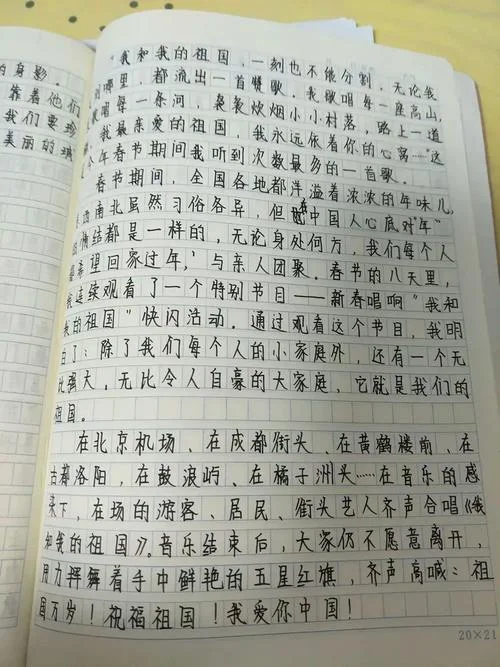 的身影
靠着他们
我们要珍
美丽的璃
"我和我的祖国,一刻也不能分割,无论我
到哪里,都流出一首赞歌,我歌唱每一座高山,
我歌唱每一条河,袅袅炊烟小小村落,路上一道
辙。我最亲爱的祖国,我永远依着你的心窝……"这
是今年春节期间我听到次数最多的一首歌。
春节期间,全国各地都洋溢着浓浓的年味儿,
东西南北虽然习俗各异,但在中国人心底对"年"
的情结都是一样的,无论身处何方,我们每个人
都希望回家过年,与亲人团聚。春节的八天里,
我连续观看了一个特别节目——新春唱响"我和
我的祖国"快闪活动。通过观看这个节目,我明
白了:除了我们每个人的小家庭外,还有一个无
比强大,无比令人自豪的大家庭,它就是我们的
祖国。
在北京机场、在成都街头、在黄鹤楼前、在
古都洛阳,在鼓浪屿、在橘子洲头……在音乐的感
染下,在场的游客、居民、街头艺人齐声合唱《我
和我的祖国》。音乐结束后,大家仍不愿意离开,
用力挥舞着手中鲜艳的五星红旗,齐声高喊:祖
国万岁!祝福祖国!我爱你中国!
20×21